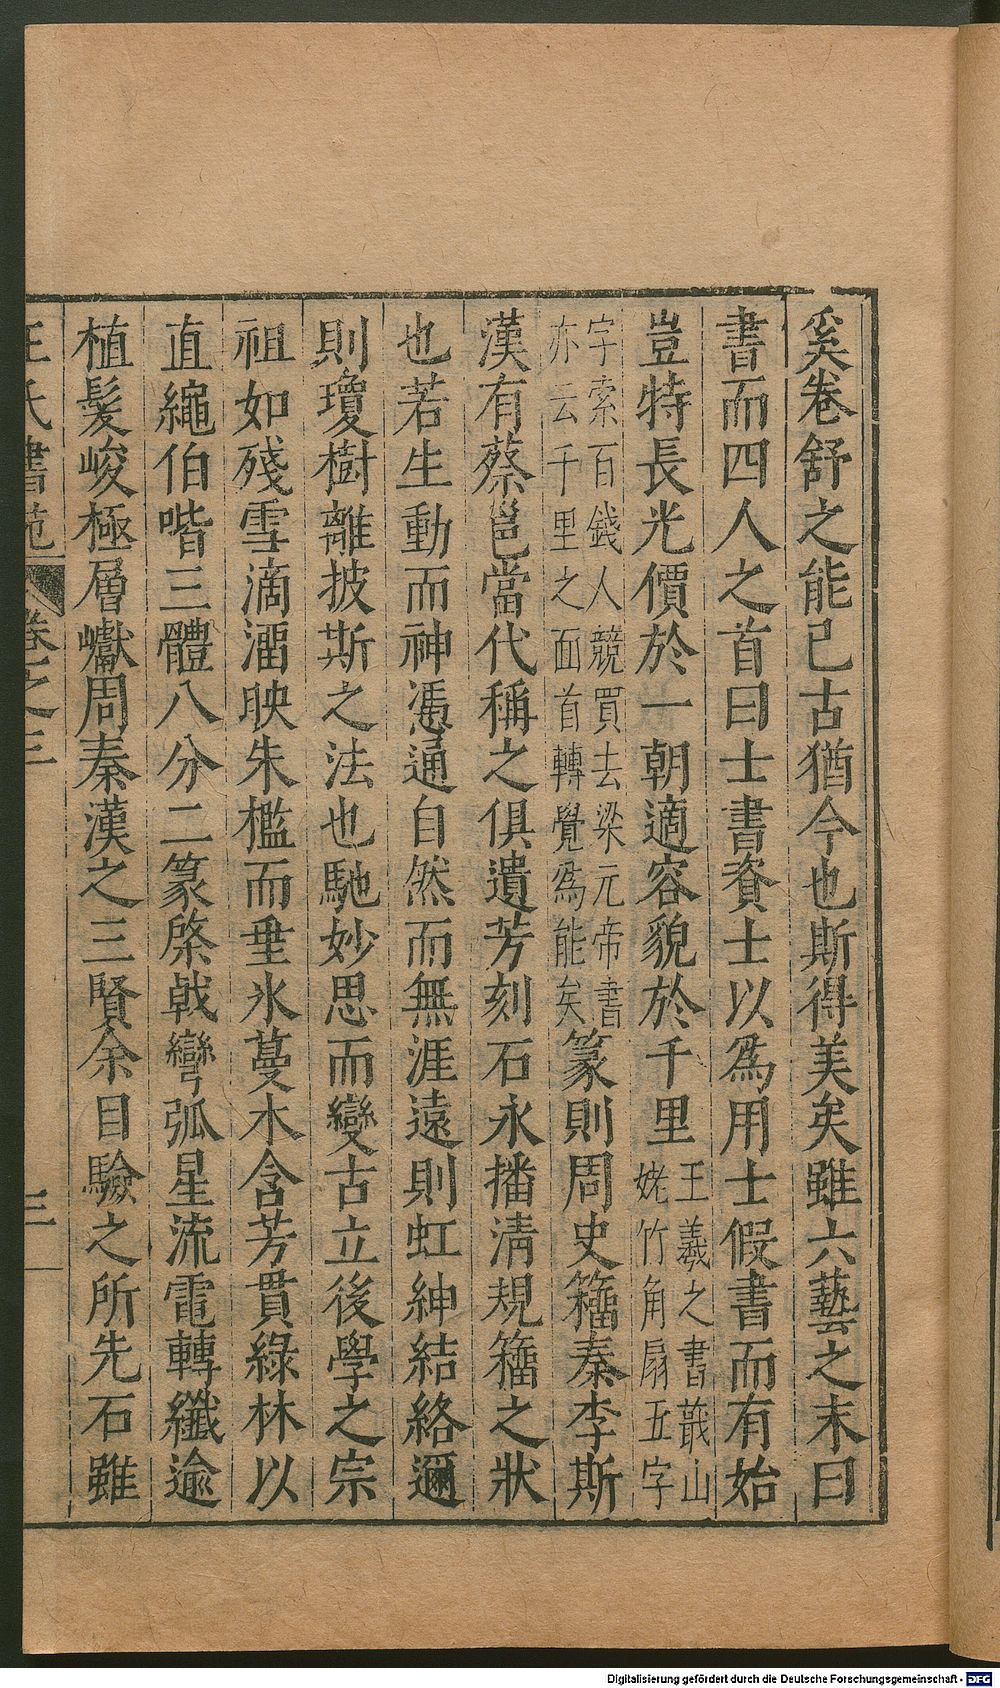 奚卷舒之能已古猶今也斯得美矣雖六藝之末曰
書而四人之首曰士書資士以為用士假書而有始
豈特長光價於一朝適容貌於千里王羲之書蕺山姥竹角扇五字
字索百錢人競買去梁元帝書亦云千里之面首轉覺為能矣篆則周史籀秦李斯
漢有蔡邕當代稱之俱遺芳刻石永播清規籀之狀
也若生動而神憑通自然而無涯遠則虹紳結絡邇
則瓊樹離披斯之法也馳妙思而變古立後學之宗
祖如殘雪滴溜映朱檻而垂氷蔓木含芳貫綠林以
直繩伯喈三體八分二篆棨戟彎弧星流電轉纖逾
植髮峻極層巘周秦漢之三賢余目驗之所先石雖
王氏書苑 卷之三 三
Digitalisierung gefördert durch die Deutsche Forschungsgemeinschaft - DFG